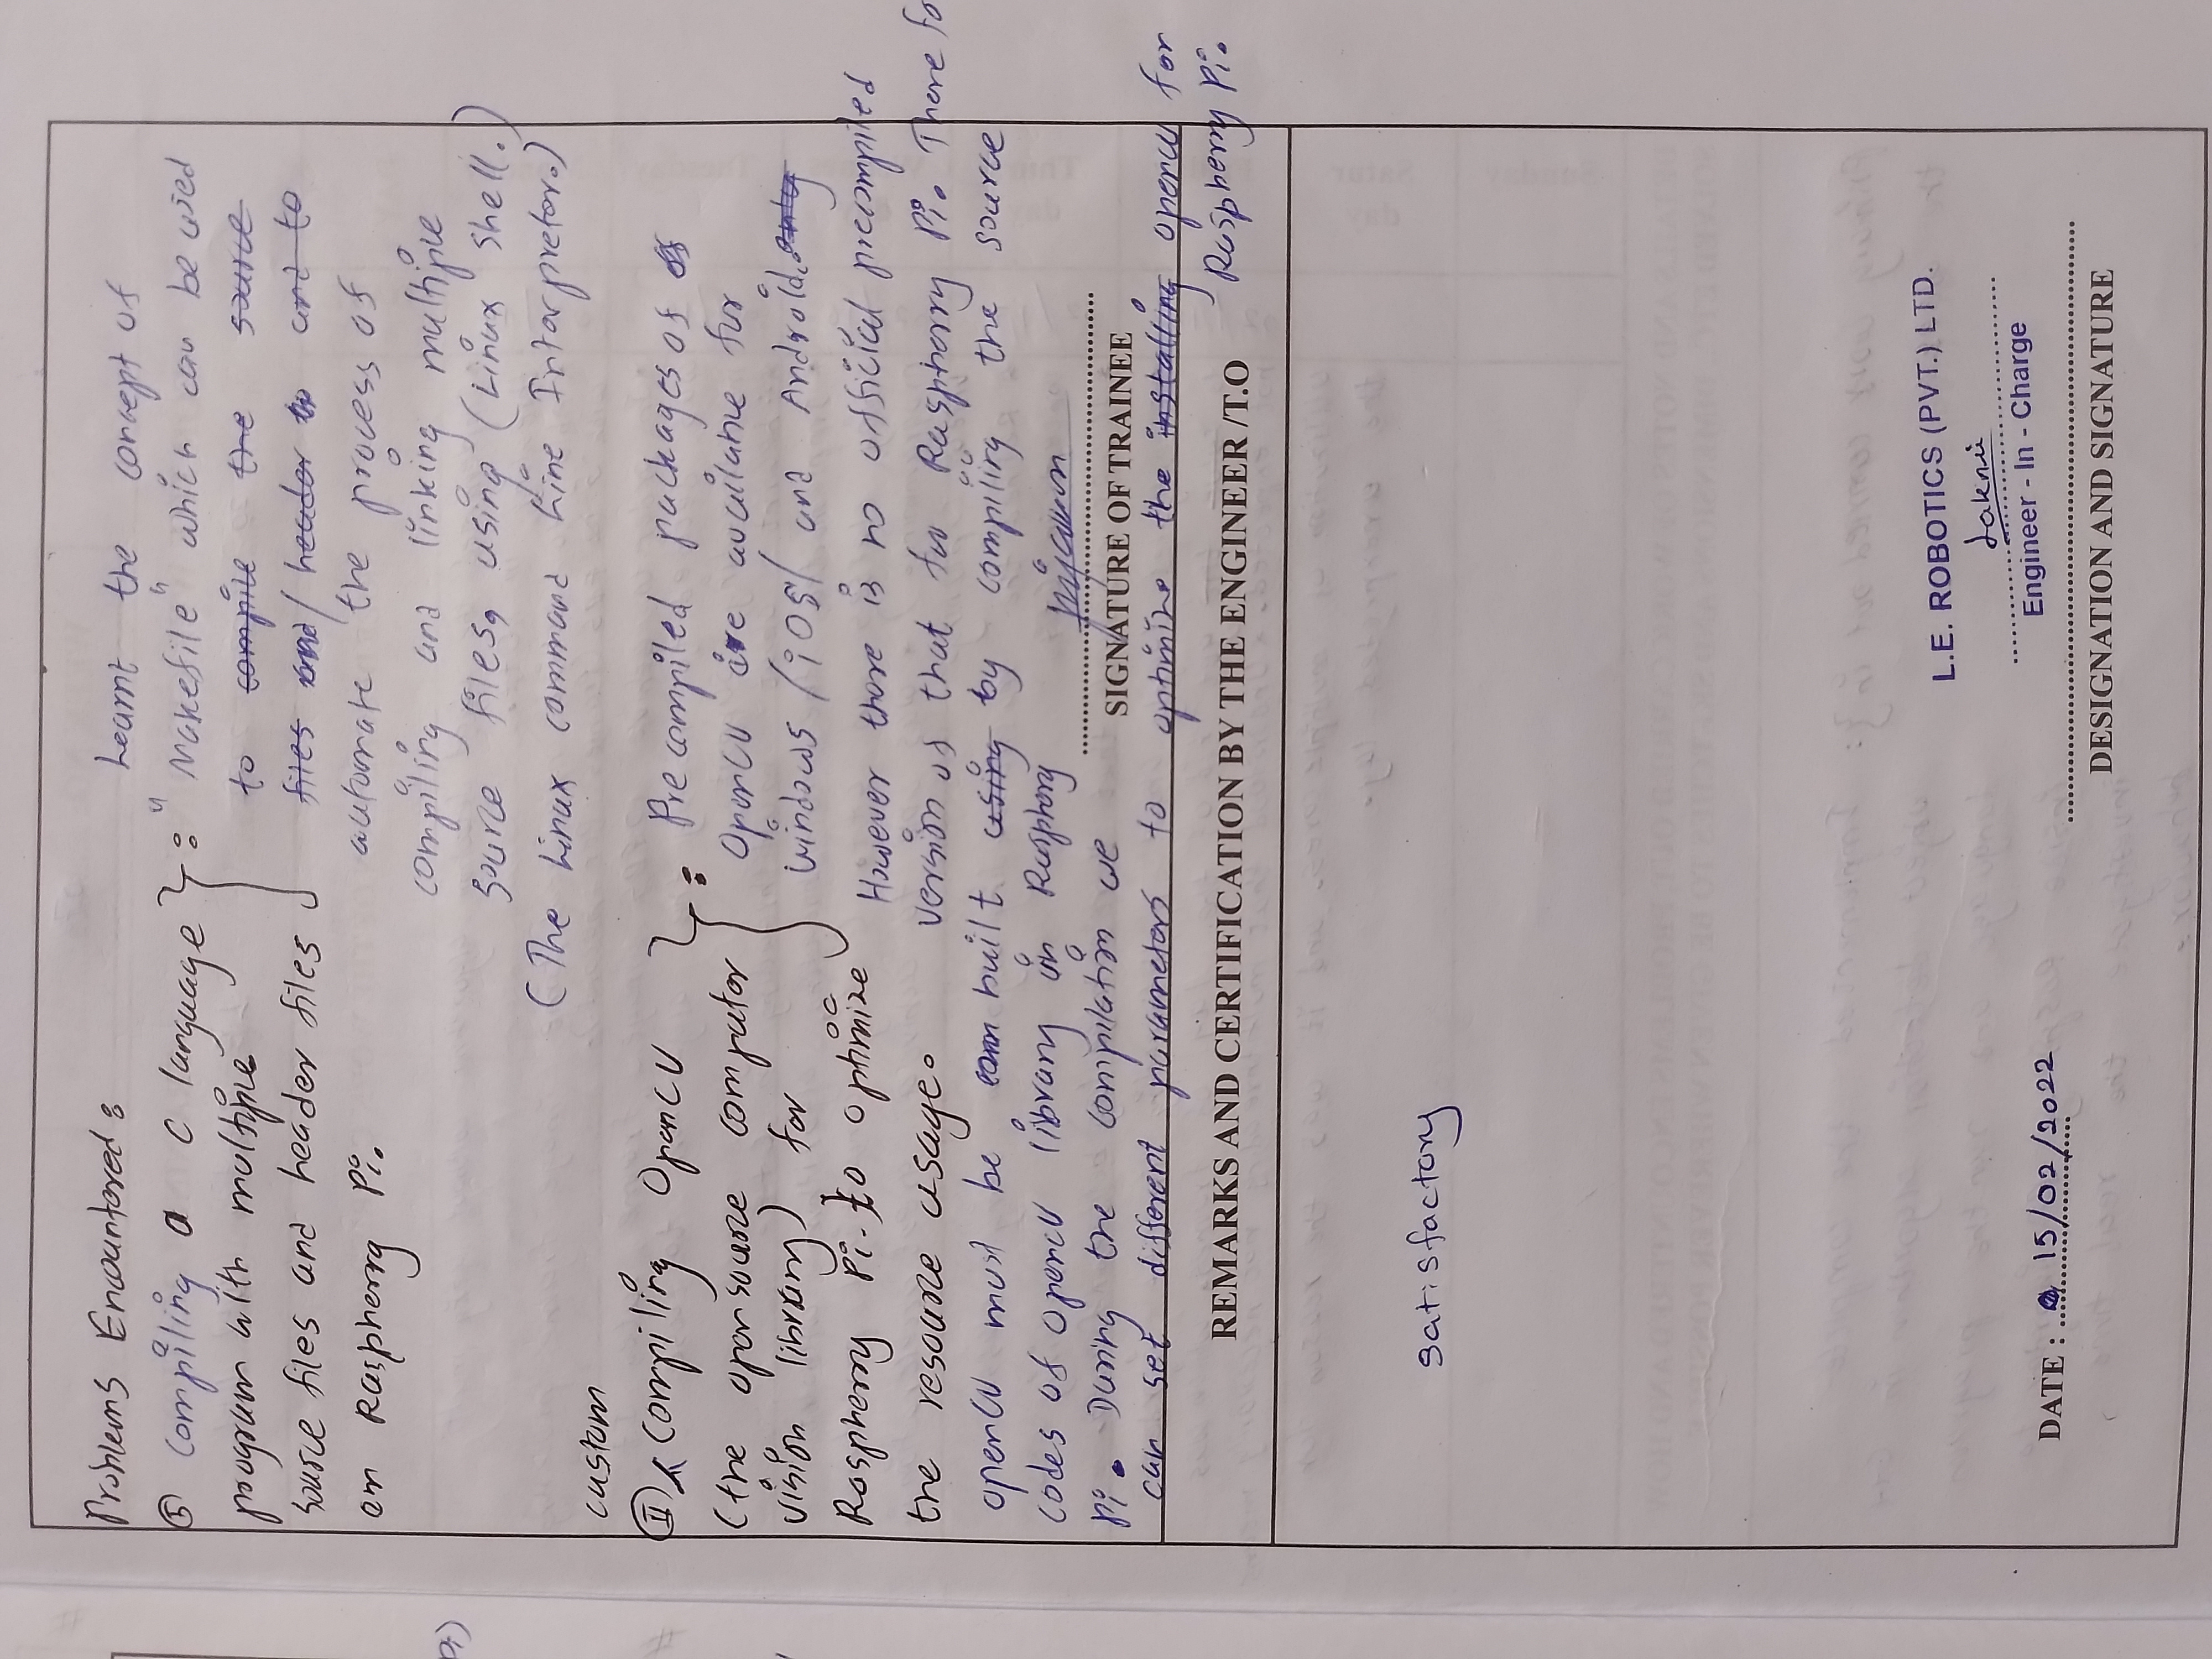 Problems Encountered :
① Compiling a C language
program with multiple
source files and header files
on Raspberry Pi.
Learnt the concept of
: "Makefile" which can be used
to compile the source
files and / header to and to
automate the process of
compiling and linking multiple
source files, using (Linux Shell.)
(The Linux command Line Interpretor.)
custom
Ⓘ compiling OpenCV
(the opensource computer
vision library) for
Raspberry Pi. to optimize
the resource usage.
: Pre compiled packages of of
OpenCV are available for
windows /iOS/ and Android. only
However there is no official precompiled
version of that for Raspberry Pi. There for
openCV must be com built using by compiling the source
codes of opencv library in Raspbery
Pi. During the compilation we
can set different parameters to optimize the installing opencv for
Raspberry Pi.
SIGNATURE OF TRAINEE
REMARKS AND CERTIFICATION BY THE ENGINEER /T.O
satisfactory
L.E. ROBOTICS (PVT.) LTD.
Engineer - In - Charge
DATE : 15/02/2022
DESIGNATION AND SIGNATURE